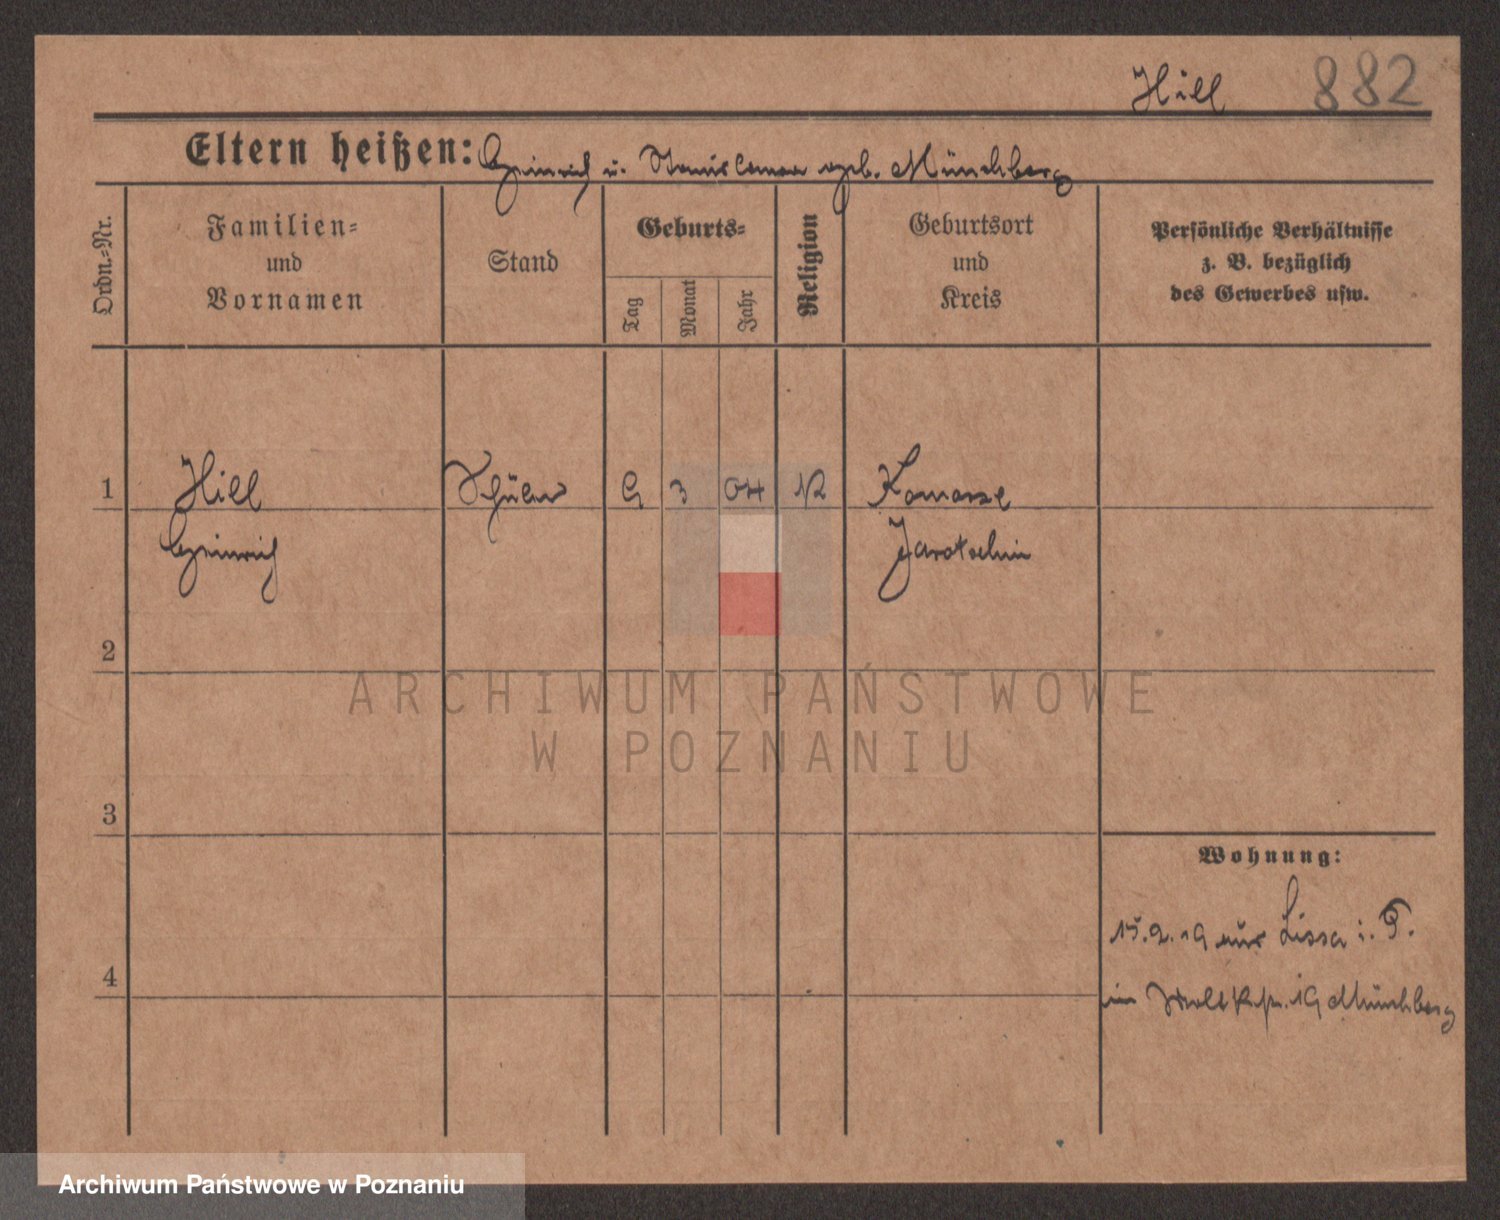 Hill 882
Eltern heißen: Heinrich u. Stanislawa geb. Münchberg
Ordn.-Nr.
Familien-
und
Vornamen
Stand
Geburts-
Tag
Monat
Jahr
Religion
Geburtsort
und
Kreis
Persönliche Verhältnisse
z. B. bezüglich
des Gewerbes usw.
1 Hill Schüler 9 3 04 K Komorze
Heinrich Jarotschin
2
3
4
Wohnung:
15.9.19 aus Lissa i. P.
19 Münchberg
ARCHIWUM PAŃSTWOWE
W POZNANIU
Archiwum Państwowe w Poznaniu